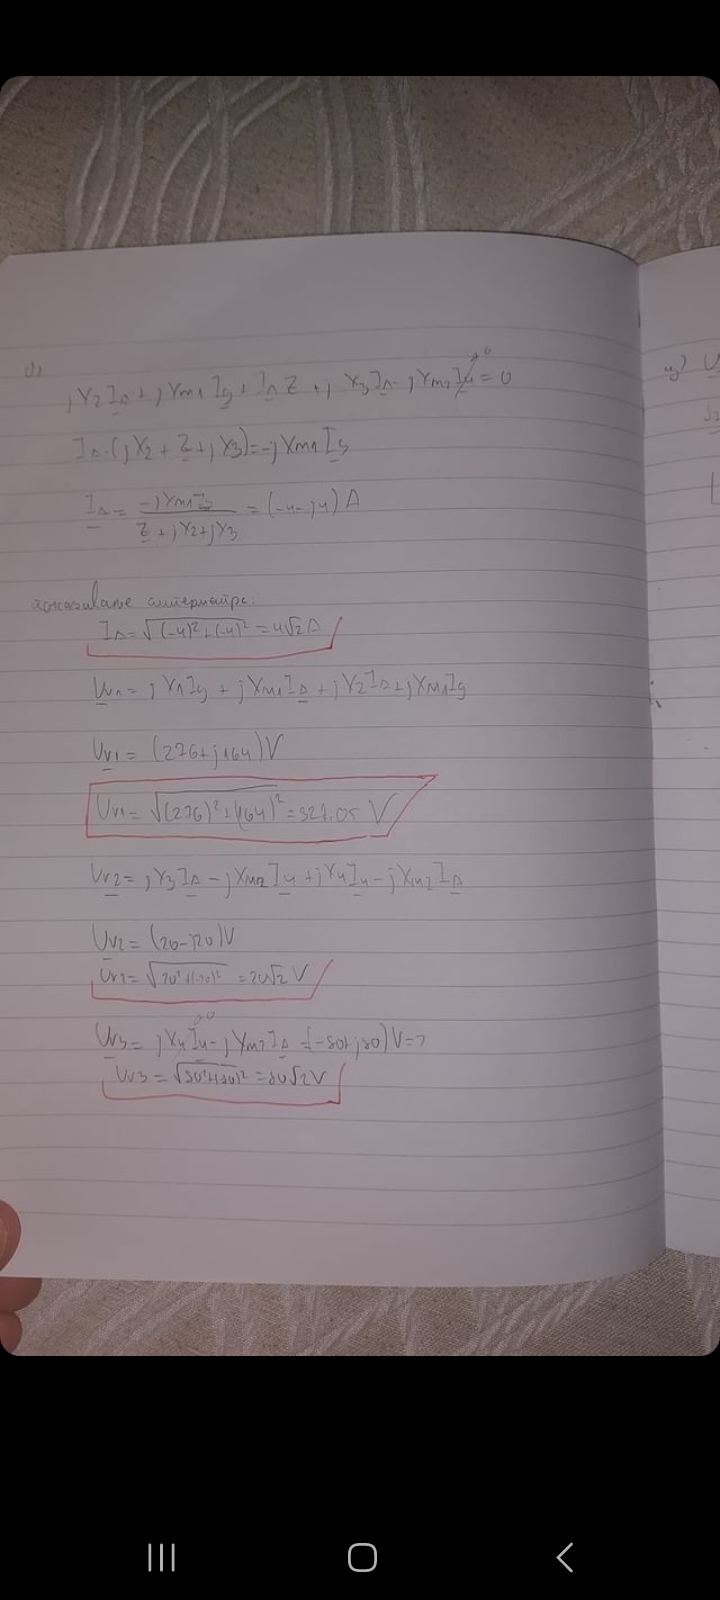 jX₂I_A + jX_m1 I_g + I_A Z + jX₃I_A - jX_m2 I₄ = 0
I_A·(jX₂ + Z + jX₃) = -jX_m1 I_g
I_A = -jX_m1 I_g / (Z + jX₂ + jX₃) = (-4-j4) A
амперметра:
I_A = √((-4)² + (-4)²) = 4√2 A
U_V1 = jX₁I_g + jX_m1 I_A + jX₂I_A + jX_m1 I_g
U_V1 = (276+j164)V
U_V1 = √((276)² + (164)²) = 321.05 V
U_V2 = jX₃I_A - jX_m2 I₄ + jX₄I₄ - jX_m2 I_A
U_V2 = (20-j20)V
U_V2 = √(20² + (-20)²) = 20√2 V
U_V3 = jX₄I₄ - jX_m2 I_A = (-80+j80)V =>
U_V3 = √(80² + (80)²) = 80√2 V